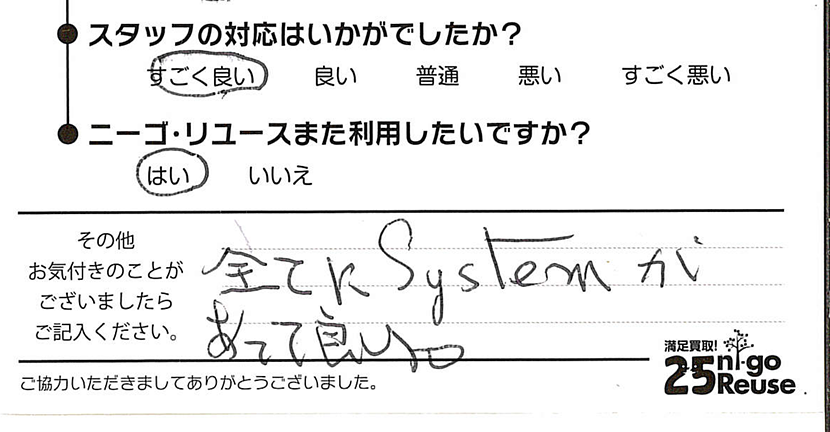 スタッフの対応はいかがでしたか?
すごく良い 良い 普通 悪い すごく悪い
ニーゴ・リユースまた利用したいですか?
はい いいえ
その他
お気付きのことが
ございましたら
ご記入ください。
全てにSystemが
あって良い。
ご協力いただきましてありがとうございました。
満足買取!
25 ni-go
Reuse